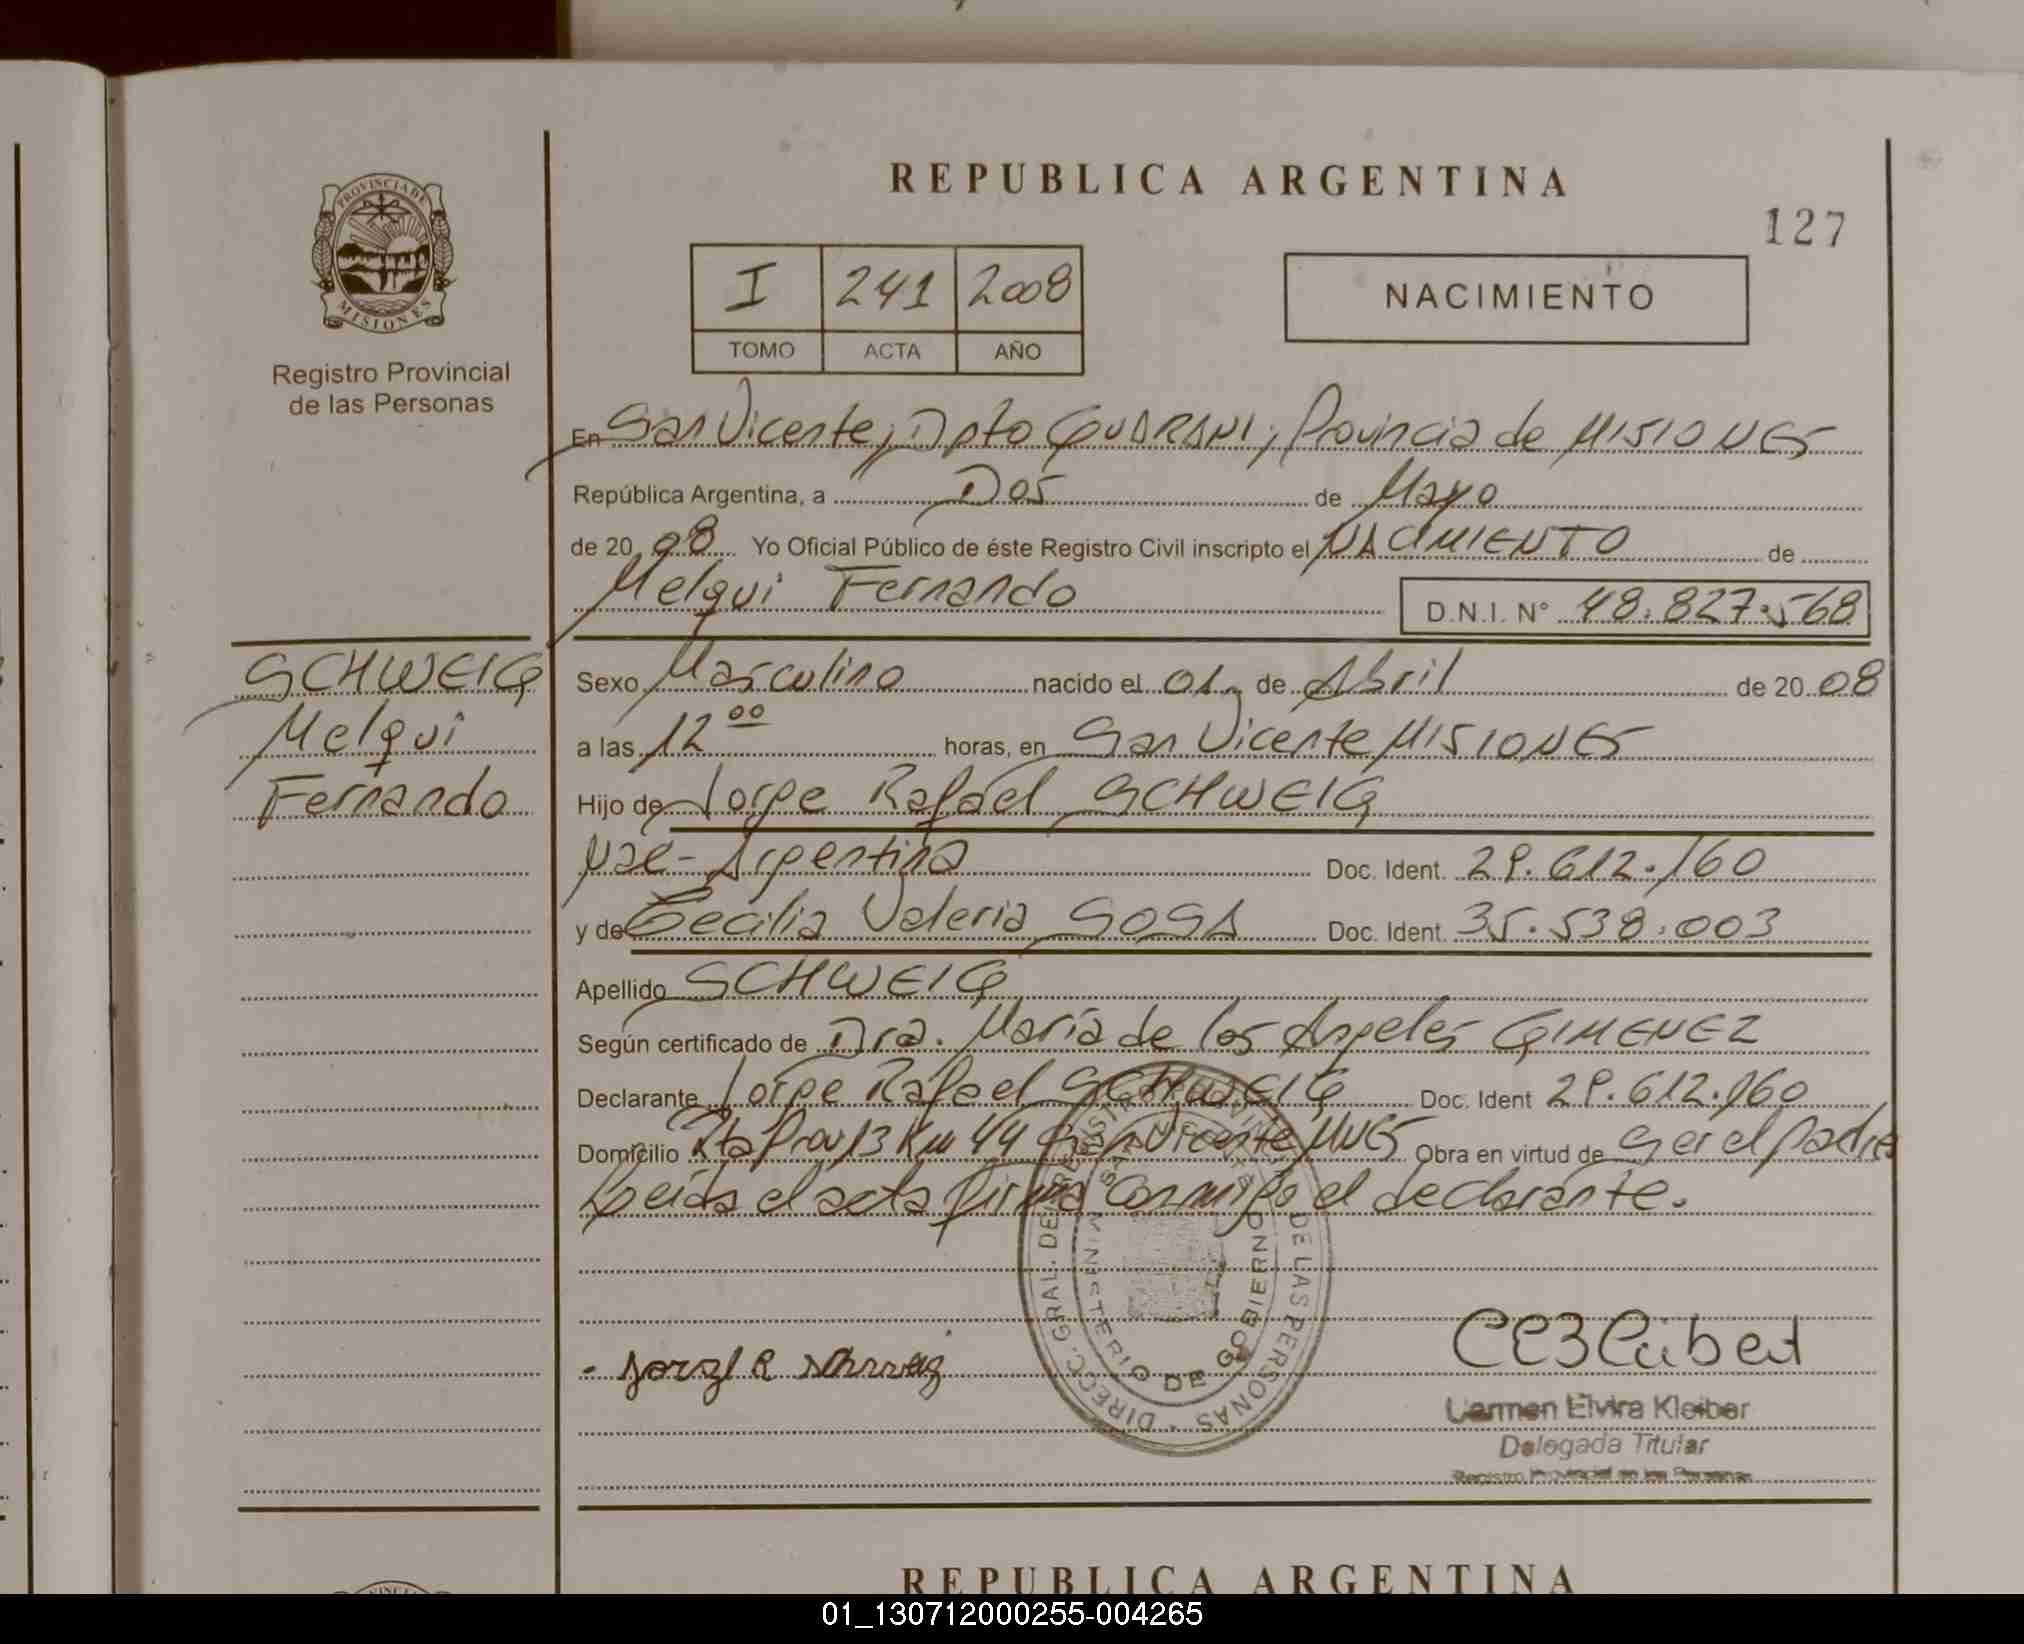 REPUBLICA ARGENTINA
127
PROVINCIA DE MISIONES
Registro Provincial
de las Personas
I 241 2008
TOMO ACTA AÑO
NACIMIENTO
En San Vicente, Dpto GUARANI, Provincia de MISIONES
República Argentina, a Dos de Mayo
de 20 08 Yo Oficial Público de éste Registro Civil inscripto el NACIMIENTO de
Melqui Fernando D.N.I. N° 48.827.568
SCHWEIG
Melqui
Fernando
Sexo Masculino nacido el 01 de Abril de 20 08
a las 12 00 horas, en San Vicente MISIONES
Hijo de Jorge Rafael SCHWEIG
Nac-Argentina Doc. Ident. 29.612.160
y de Cecilia Valeria SOSA Doc. Ident. 35.538.003
Apellido SCHWEIG
Según certificado de Dra. María de los Angeles GIMENEZ
Declarante Jorge Rafael SCHWEIG Doc. Ident 29.612.160
Domicilio Rta Prov 13 Km 44 San Vicente MNES Obra en virtud de ser el padre
Leida el acta firma conmigo el declarante.
DIRECC. GRAL. DE REGISTRO PROVINCIAL DE LAS PERSONAS
MINISTERIO DE GOBIERNO
Carmen Elvira Kleiber
Delegada Titular
Registro Provincial de las Personas
REPUBLICA ARGENTINA
01_130712000255-004265